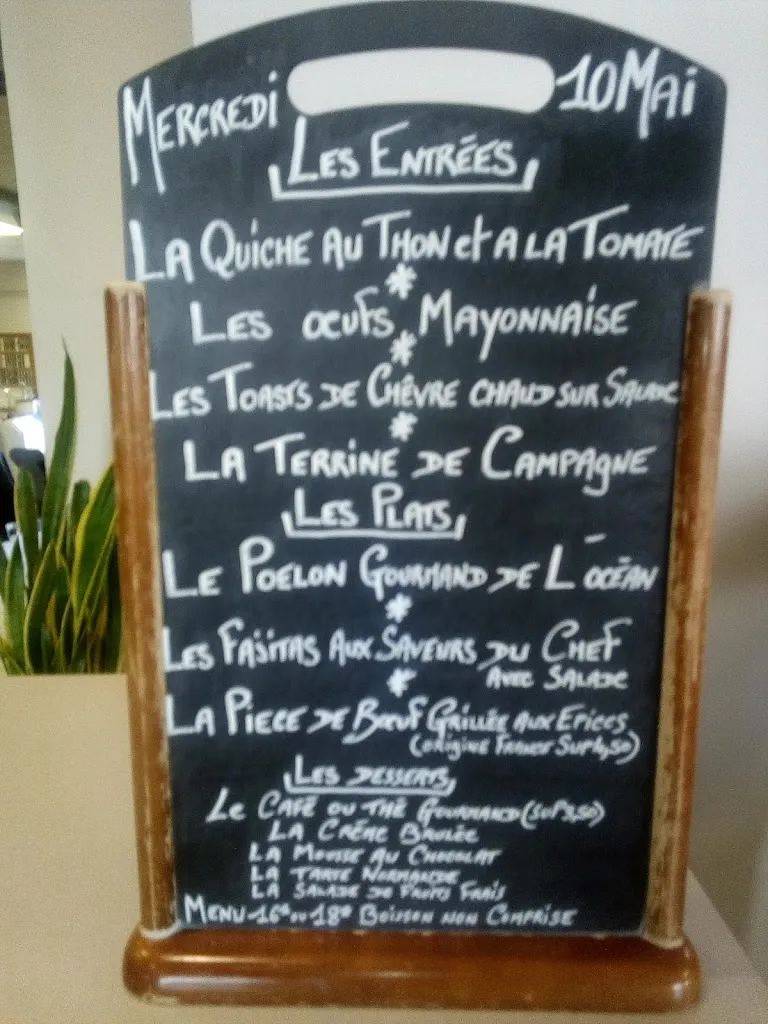 MERCREDI 10 MAI
LES ENTRÉES
LA QUICHE AU THON et A LA TOMATE
*
LES ŒUFS MAYONNAISE
*
LES TOASTS DE CHÈVRE CHAUD SUR SALADE
*
LA TERRINE DE CAMPAGNE
LES PLATS
LE POELON GOURMAND DE L'OCÉAN
*
LES FAJITAS AUX SAVEURS DU CHEF
AVEC SALADE
*
LA PIECE DE BŒUF GRILLÉE AUX EPICES
(ORIGINE FRANCE SUP 4,50)
LES DESSERTS
LE CAFÉ OU THÉ GOURMAND (SUP 3,50)
LA CRÈME BRULÉE
LA MOUSSE AU CHOCOLAT
LA TARTE NORMANDE
LA SALADE DE FRUITS FRAIS
MENU 16€ ou 18€ BOISSON NON COMPRISE